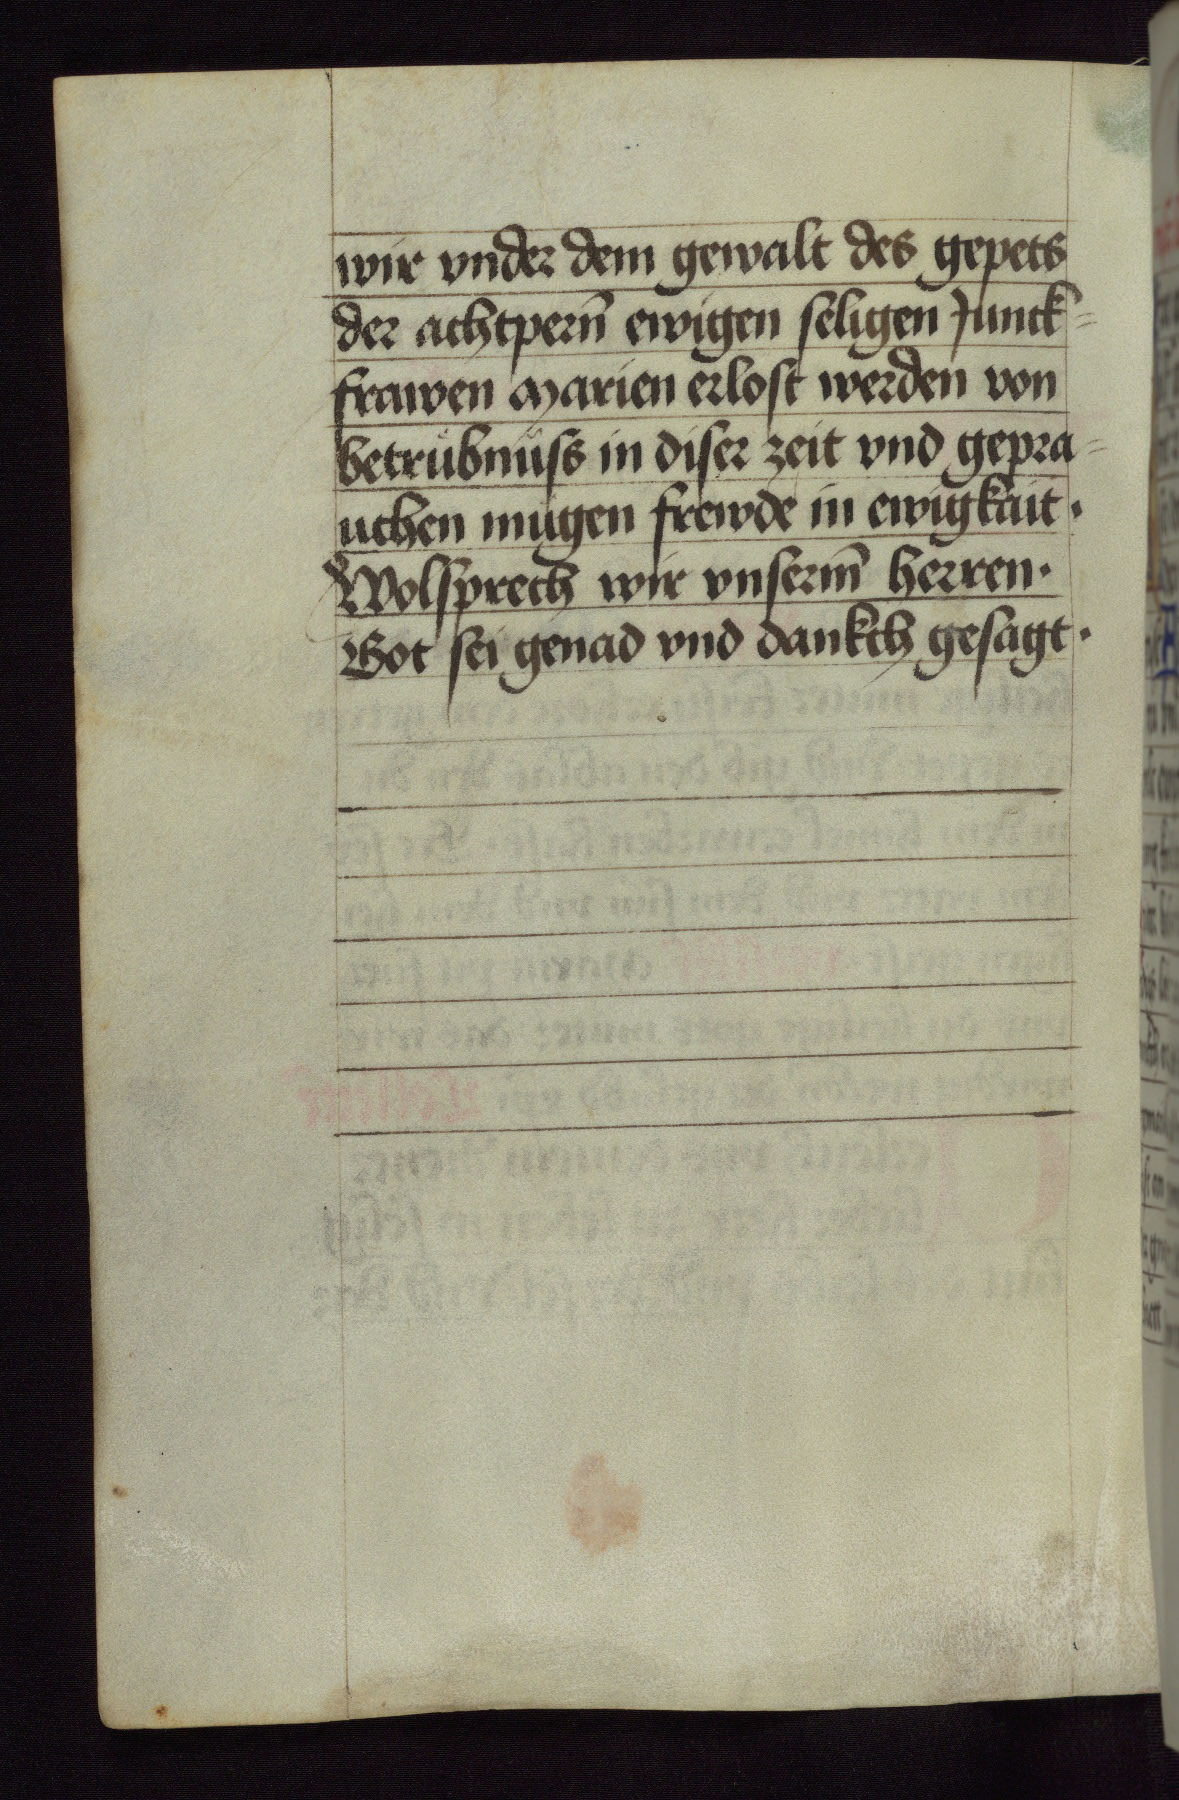 wir vnder dem gewalt des gepets
der achtpern̄ ewigen seligen Junck=
frawen Marien erlost werden von
betrübnüss in diser zeit vnd gepra=
uchen mügen frewde in ewigkait·
Wolsprech wir vnserm̄ herren·
Got sei genad vnd dankch gesagt·